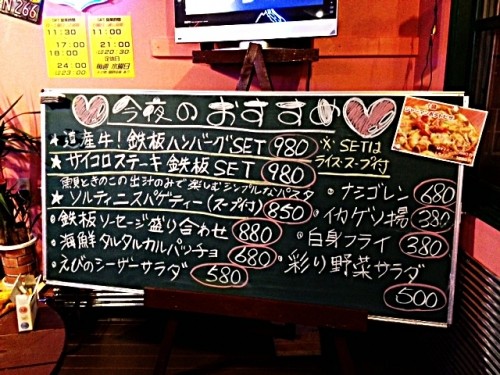 今夜のおすすめ
★道産牛!鉄板ハンバーグSET 980
★サイコロステーキ鉄板SET 980
※SETは
ライス・スープ付
貝ときのこの出汁のみで楽しむシンプルなパスタ
★ソルティニスパゲティー(スープ付) 850
・鉄板ソーセージ盛り合わせ 880
・海鮮タルタルカルパッチョ 680
・えびのシーザーサラダ 580
・ナシゴレン 680
・イカゲソ揚 380
・白身フライ 380
・彩り野菜サラダ 500
11:30
17:00
18:00
24:00
21:00